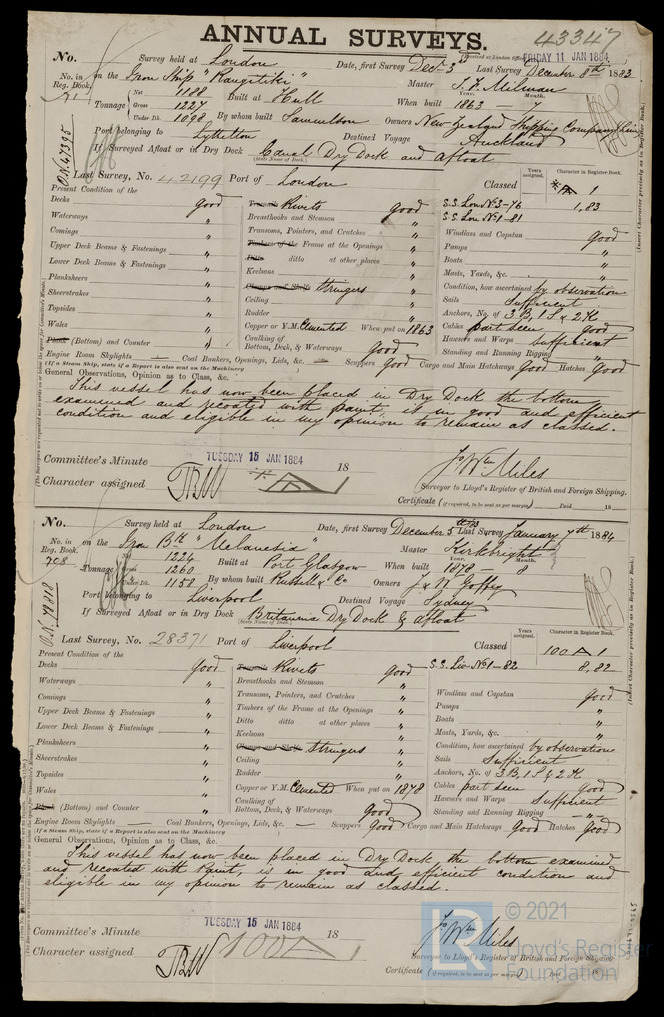 ANNUAL SURVEYS.
43347
No. Survey held at London Date, first Survey Decr 3rd Last Survey December 8th 1883
FRIDAY 11 JAN 1884
No. in Reg. Book. 71 on the Iron Ship "Rangitiki" Master
Tonnage Net 1188 Gross 1227 Under Dk. 1098 Built at Hull When built Year. 1863 Month. 7
By whom built Samuelson Owners New Zealand Shipping Company
Port belonging to Lyttelton Destined Voyage Auckland
If Surveyed Afloat or in Dry Dock Canal Dry Dock and afloat
(State Name of Dock.)
O.N. 47395
Last Survey, No. 42199 Port of London Classed
Years assigned. Character in Register Book.
A 1
1,83
Present Condition of the
Decks good Treenails Rivets good S.S. Lon No 3-76
Waterways " Breasthooks and Stemson " S.S. Lon No 1-81
Comings " Transoms, Pointers, and Crutches " Windlass and Capstan good
Upper Deck Beams & Fastenings " Timbers of the Frame at the Openings " Pumps "
Lower Deck Beams & Fastenings " Ditto ditto at other places " Boats "
Planksheers " Keelsons " Masts, Yards, &c. "
Sheerstrakes " Clamps and Shelfs Stringers " Condition, how ascertained by observation
Topsides " Ceiling " Sails Sufficient
Wales " Rudder " Anchors, No. of 3 B, 1 S & 2 K
Plank (Bottom) and Counter " Copper or Y.M. Cemented When put on 1863 Cables part seen good
Caulking of Bottom, Deck, & Waterways Good Hawsers and Warps Sufficient
Standing and Running Rigging "
Engine Room Skylights — Coal Bunkers, Openings, Lids, &c. — Scuppers Good Cargo and Main Hatchways Good Hatches Good
(If a Steam Ship, state if a Report is also sent on the Machinery
General Observations, Opinion as to Class, &c.
This vessel has now been placed in Dry Dock the bottom
examined and recoated with paint, is in good and efficient
condition and eligible in my opinion to remain as classed.
Committee's Minute TUESDAY 15 JAN 1884 18
Character assigned A 1
Jo Wm Miles
Surveyor to Lloyd's Register of British and Foreign Shipping.
Certificate (if required, to be sent as per margin) Paid 18
(Insert Character precisely as in Register Book.)
No. Survey held at London Date, first Survey December 5th Last Survey January 7th 1884
No. in Reg. Book. 798 on the Iron Bk "Melanesia" Master Kirkbright
Tonnage Net 1224 Gross 1260 Under Dk. 1158 Built at Port Glasgow When built Year. 1878 Month. 8
By whom built Russell & Co Owners J & W Goffey
Port belonging to Liverpool Destined Voyage Sydney
If Surveyed Afloat or in Dry Dock Britannia Dry Dock & afloat
(State Name of Dock.)
Last Survey, No. 28371 Port of Liverpool Classed
Years assigned. Character in Register Book.
100 A 1
8,82
Present Condition of the
Decks Good Treenails Rivets good S.S. Liv No 1-82
Waterways " Breasthooks and Stemson "
Comings " Transoms, Pointers, and Crutches " Windlass and Capstan good
Upper Deck Beams & Fastenings " Timbers of the Frame at the Openings " Pumps "
Lower Deck Beams & Fastenings " Ditto ditto at other places " Boats "
Planksheers " Keelsons " Masts, Yards, &c. "
Sheerstrakes " Clamps and Shelfs Stringers " Condition, how ascertained by observation
Topsides " Ceiling " Sails Sufficient
Wales " Rudder " Anchors, No. of 3 B, 1 S & 2 K
Plank (Bottom) and Counter " Copper or Y.M. Cemented When put on 1878 Cables part seen Good
Caulking of Bottom, Deck, & Waterways Good Hawsers and Warps Sufficient
Standing and Running Rigging "
Engine Room Skylights — Coal Bunkers, Openings, Lids, &c. — Scuppers Good Cargo and Main Hatchways Good Hatches Good
(If a Steam Ship, state if a Report is also sent on the Machinery
General Observations, Opinion as to Class, &c.
This vessel has now been placed in Dry Dock the bottom examined
and recoated with Paint, is in good and efficient condition and
eligible in my opinion to remain as classed.
Committee's Minute TUESDAY 15 JAN 1884 18
Character assigned 100 A 1
Jo Wm Miles
Surveyor to Lloyd's Register of British and Foreign Shipping.
Certificate (if required, to be sent as per margin)
(Insert Character precisely as in Register Book.)
© 2021
Lloyd's Register
Foundation